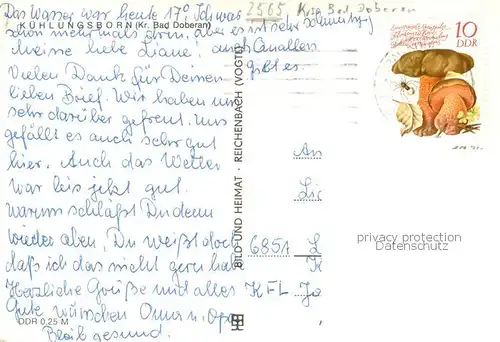 Das Wasser war heute 17°. Ich war
schon mehrmals drin, aber es ist sehr schmutzig
KÜHLUNGSBORN (Kr. Bad Doberan)
2565 Krs. Bad Doberan
Meine liebe Liane! auch Quallen
gibt es.
Vielen Dank für Deinen
lieben Brief. Wir haben uns
sehr darüber gefreut. Uns
gefällt es auch sehr gut
hier. Auch das Wetter
war bis jetzt gut.
Warum schläfst Du denn
wieder oben, Du weißt doch
daß ich das nicht gern habe
Herzliche Grüße und alles
Gute wünschen Oma u. Opa
Bleib gesund.
DDR 0,25 M
BILD UND HEIMAT · REICHENBACH (VOGTL)
10
DDR
An
6851 L
KFL
privacy protection
Datenschutz